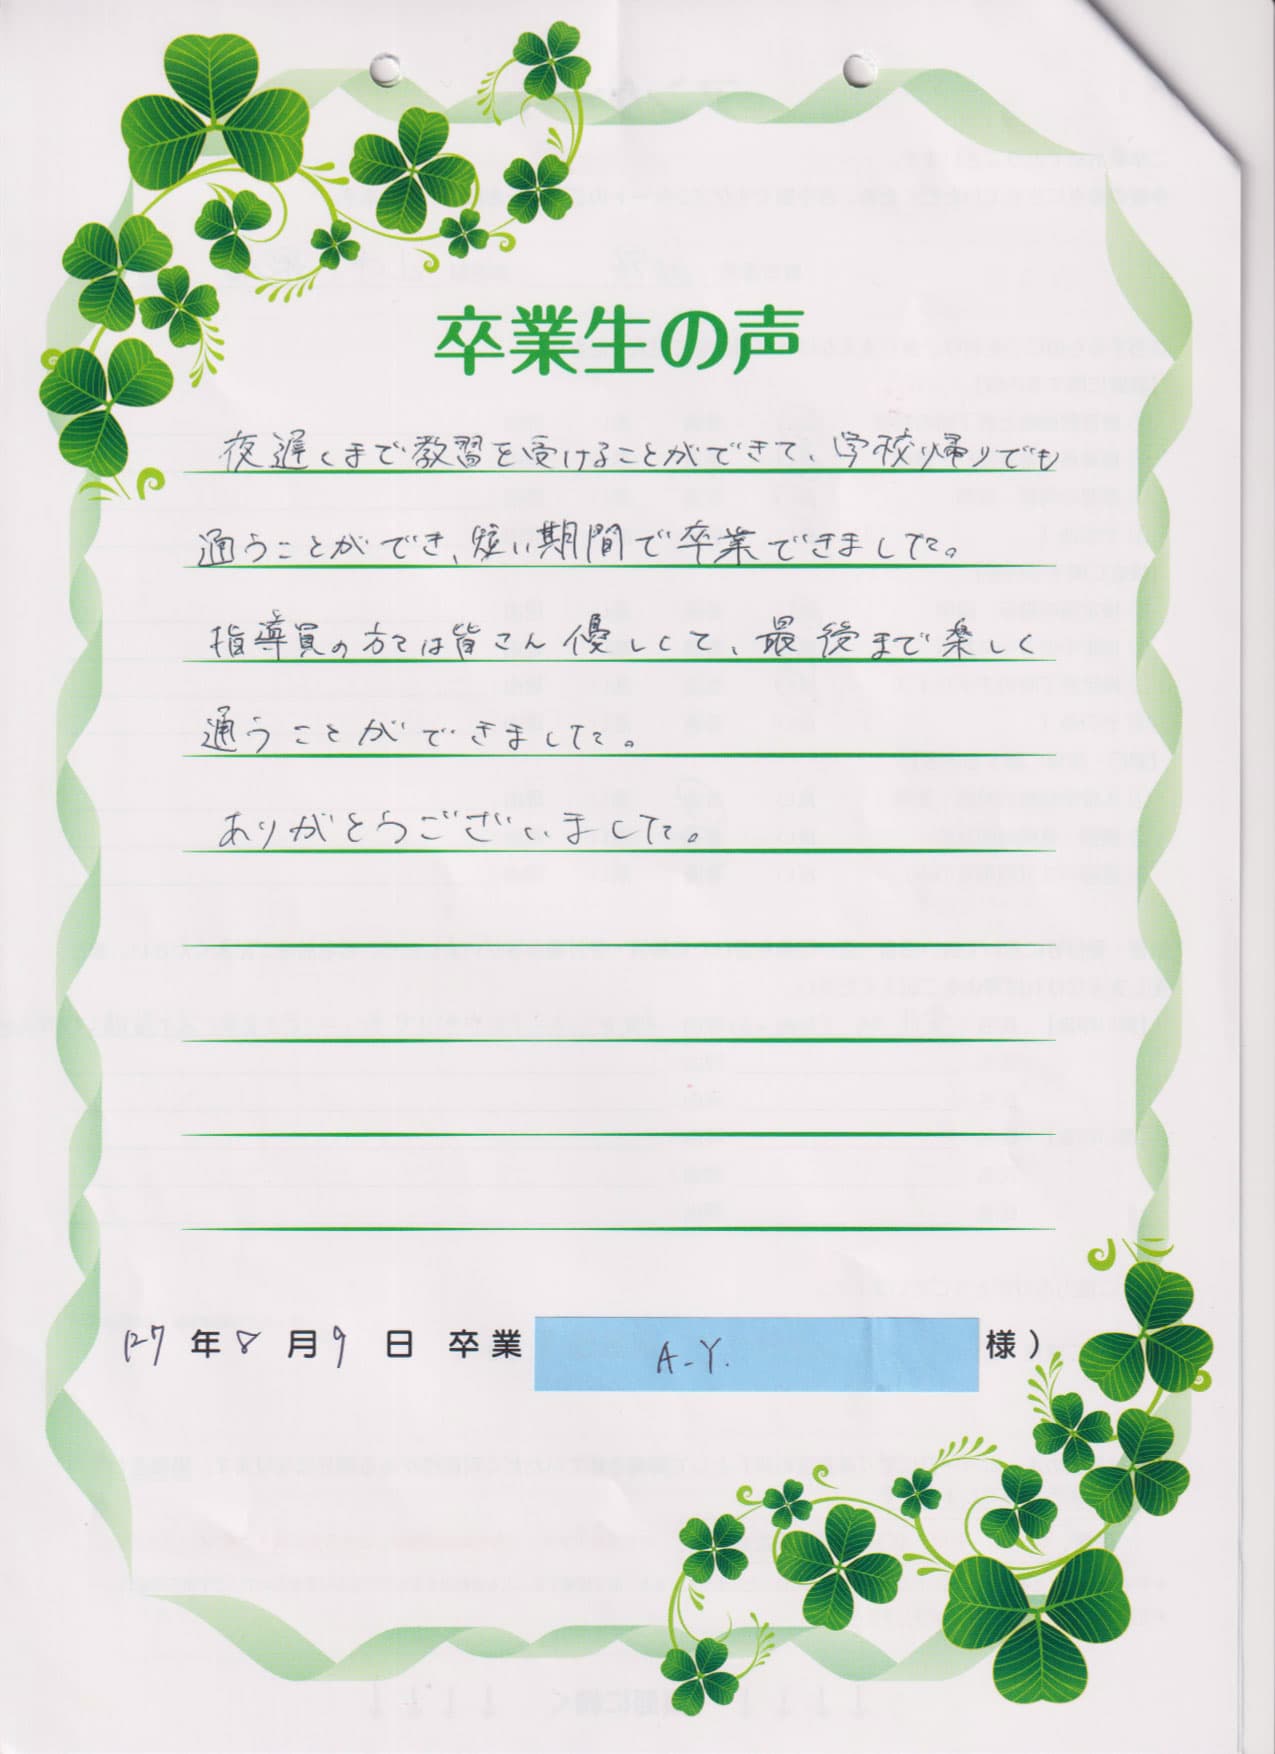 卒業生の声
夜遅くまで教習を受けることができて、学校帰りでも
通うことができ、短い期間で卒業できました。
指導員の方々は皆さん優しくて、最後まで楽しく
通うことができました。
ありがとうございました。
H27年8月9日 卒業 A-Y. 様）